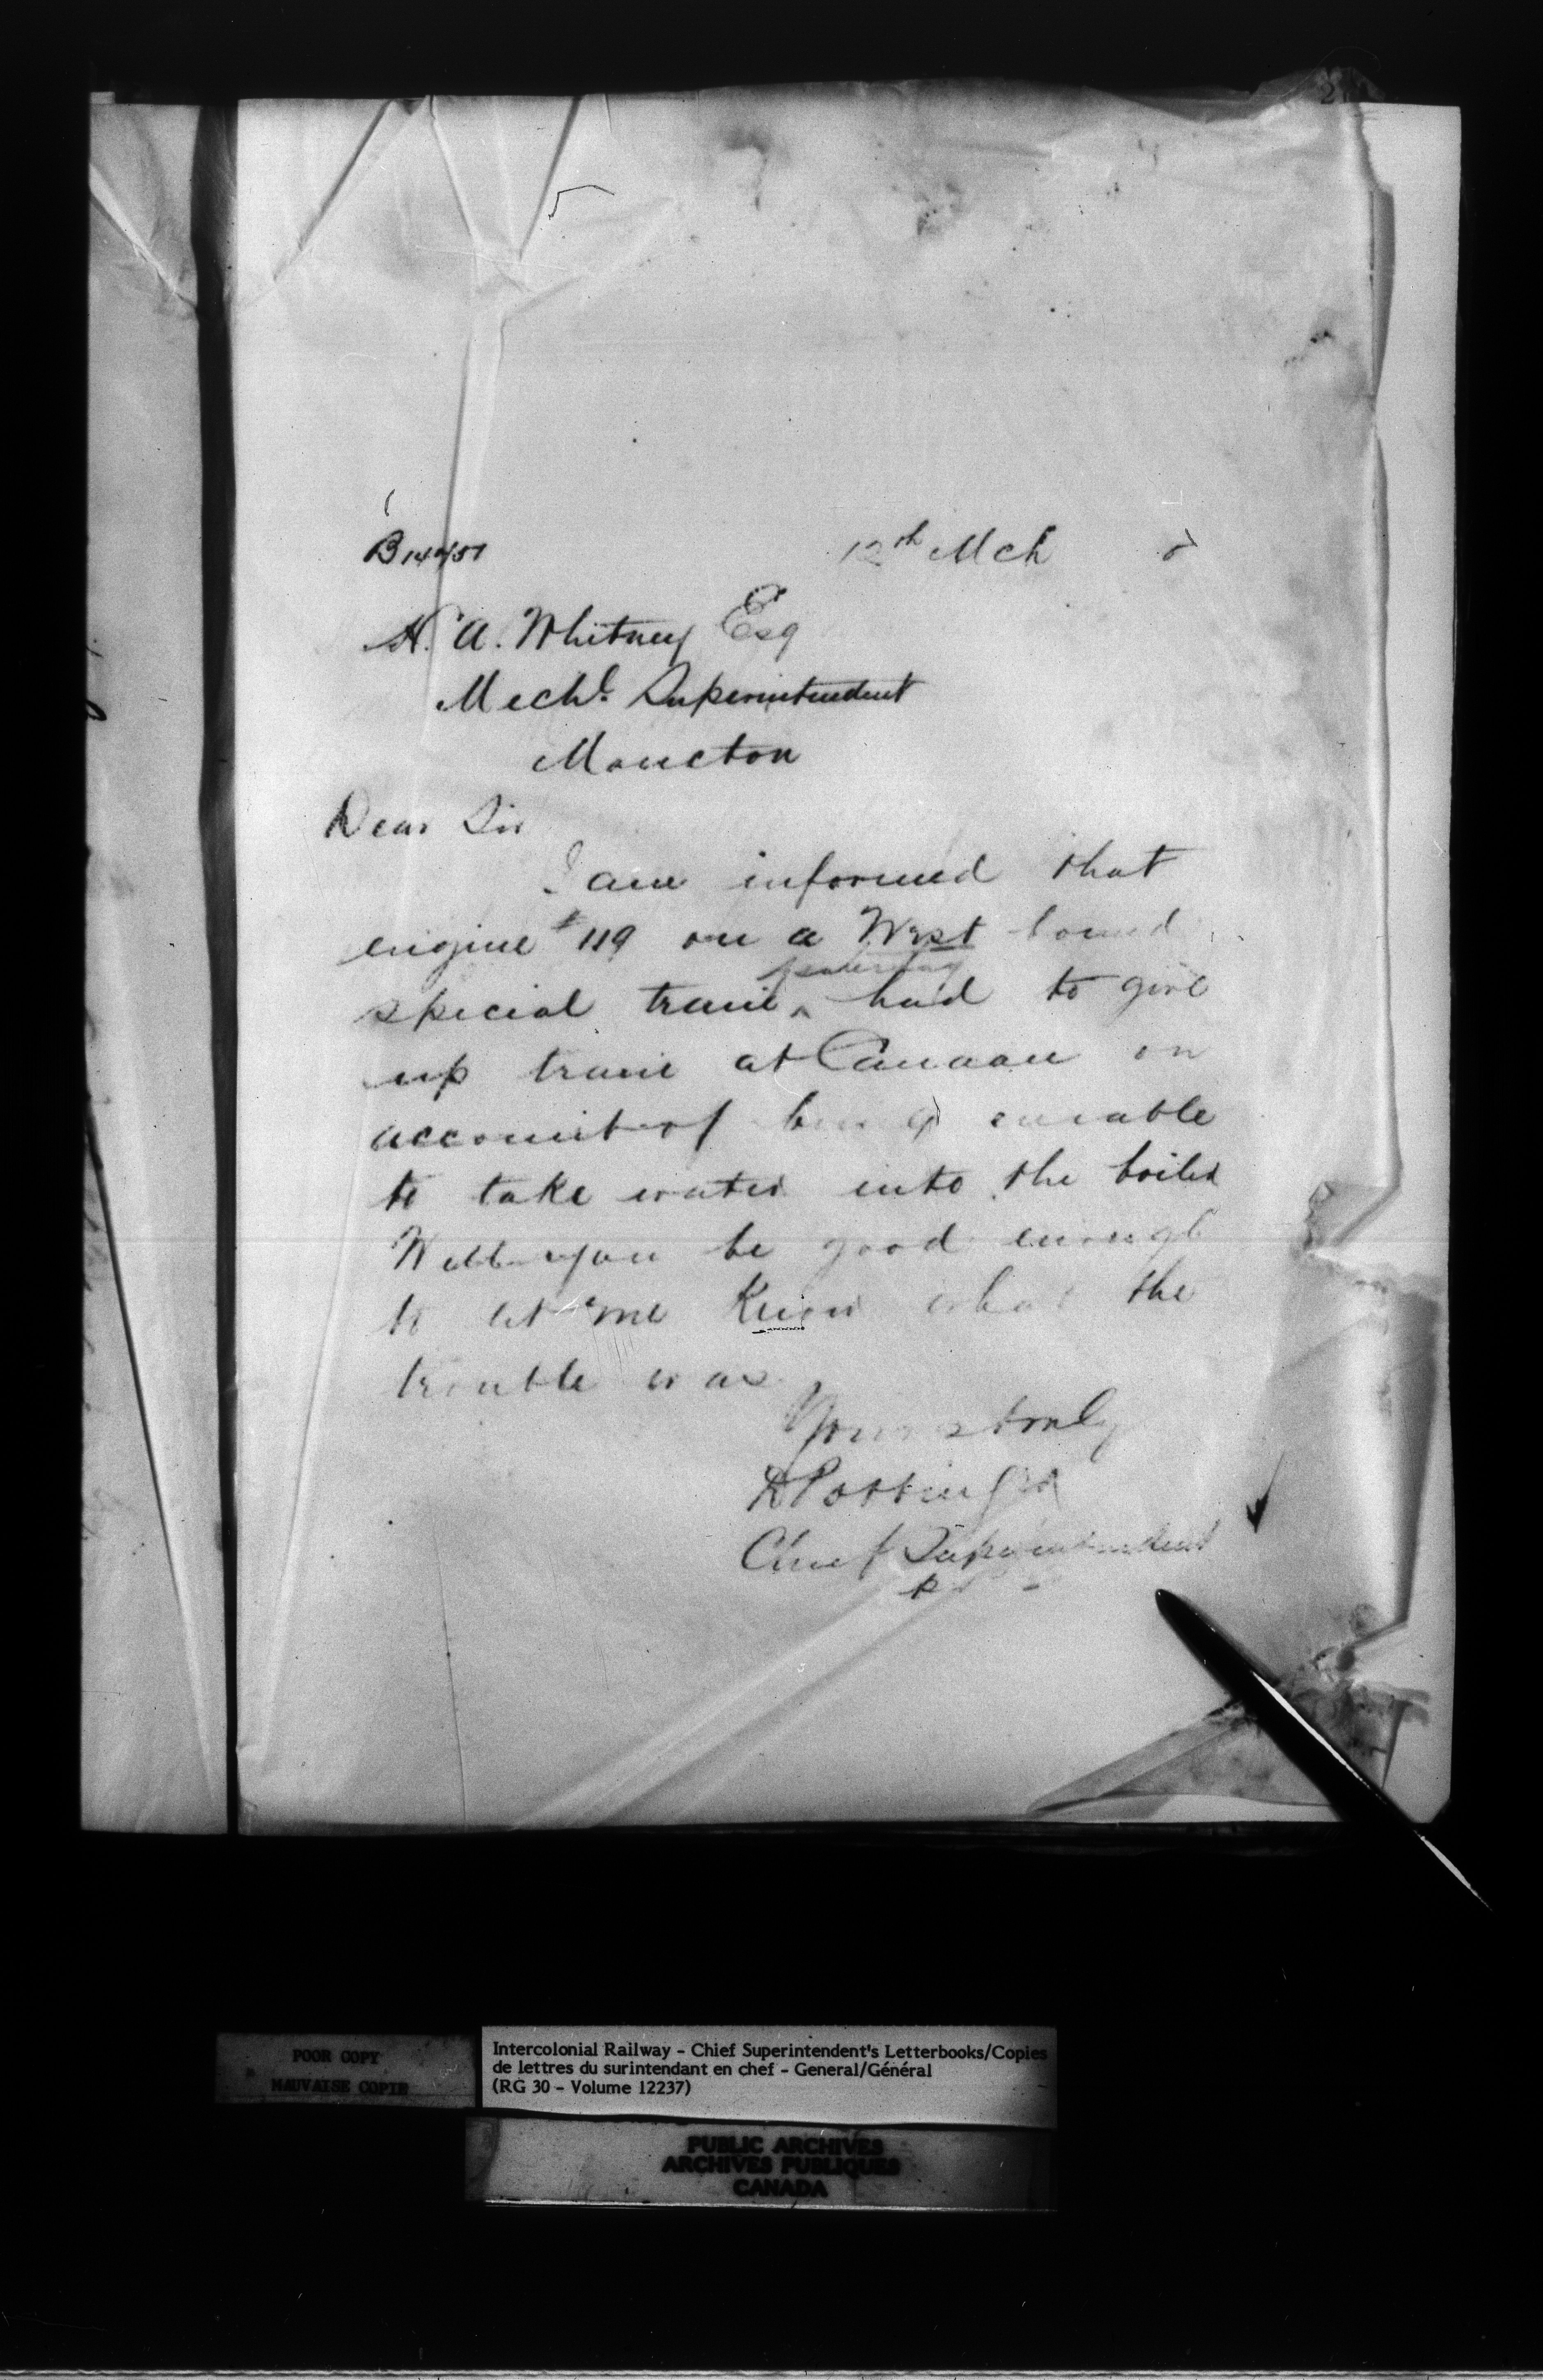 12th Mch
H. A. Whitney Esq
Mechl. Superintendent
Moncton
Dear Sir
I am informed that
engine #119 on a West bound
yesterday
special train ^ had to give
up train at Canaan on
account of being unable
to take water into the boiler
Will you be good enough
to let me know what the
trouble was
Yours truly
D Pottinger
Chief Superintendent
POOR COPY
MAUVAISE COPIE
Intercolonial Railway - Chief Superintendent's Letterbooks/Copies
de lettres du surintendant en chef - General/Général
(RG 30 - Volume 12237)
PUBLIC ARCHIVES
ARCHIVES PUBLIQUES
CANADA